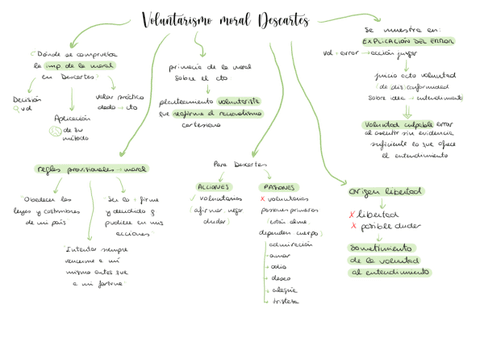 Voluntarismo moral Descartes
¿Dónde se comprueba
la imp. de la moral
en Descartes?
Decisión
vd
Aplicación
de su
método
Valor práctico
dado → cto
primacía de la moral
sobre el cto
planteamiento voluntarista
que reafirma el racionalismo
cartesiano
Se muestra en:
EXPLICACIÓN DEL ERROR
vol → error → acción juzgar
juicio acto voluntad
de dis/conformidad
sobre idea → entendimiento
Voluntad culpable errar
al asentir sin evidencia
suficiente lo que ofrece
el entendimiento
reglas provisionales → moral
Obedecer las
leyes y costumbres
de mi país
Ser lo + firme
y decidido y
prudente en mis
acciones
Intentar siempre
vencerme a mí
mismo antes que
a mi fortuna
Para Descartes
ACCIONES
voluntarias
(afirmar, negar
dudar)
PASIONES
X voluntarias
pasiones primarias
(están alma
dependen cuerpo)
admiración
amor
odio
deseo
alegría
tristeza
origen libertad
X libertad
X posible dudar
Sometimiento
de la voluntad
al entendimiento